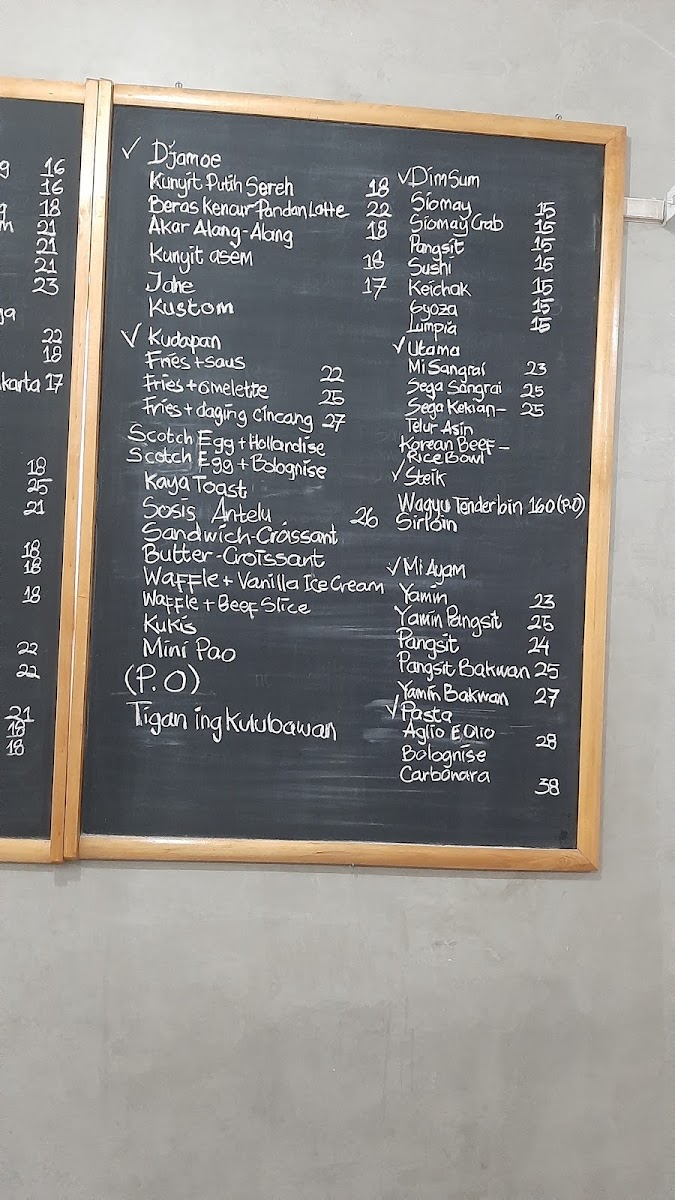 16
16
18
21
21
21
23
22
18
karta 17
18
25
21
18
18
18
22
22
21
18
18
✓ Djamoe
Kunyit Putih Sereh 18
Beras Kencur Pandan Latte 22
Akar Alang-Alang 18
Kunyit asem 18
Jahe 17
Kustom
✓ Kudapan
Fries + saus 22
Fries + Omelette 25
Fries + daging cincang 27
Scotch Egg + Hollandise
Scotch Egg + Bolognise
Kaya Toast
Sosis Antelu 26
Sandwich-Croissant
Butter-Croissant
Waffle + Vanilla Ice Cream
Waffle + Beef Slice
Kukis
Mini Pao
(P.O)
Tigan ing Kulubawan
✓ DimSum
Siomay 15
Siomay Crab 15
Pangsit 15
Sushi 15
Keichak 15
Gyoza 15
Lumpia 15
✓ Utama
Mi Sangrai 23
Sega Sangrai 25
Sega Kekian- 25
Telur Asin
Korean Beef-
Rice Bowl
✓ Steik
Wagyu Tenderloin 160 (P.O)
Sirloin
✓ Mi Ayam
Yamin 23
Yamin Pangsit 25
Pangsit 24
Pangsit Bakwan 25
Yamin Bakwan 27
✓ Pasta
Aglio E Olio 28
Bolognise
Carbonara 38